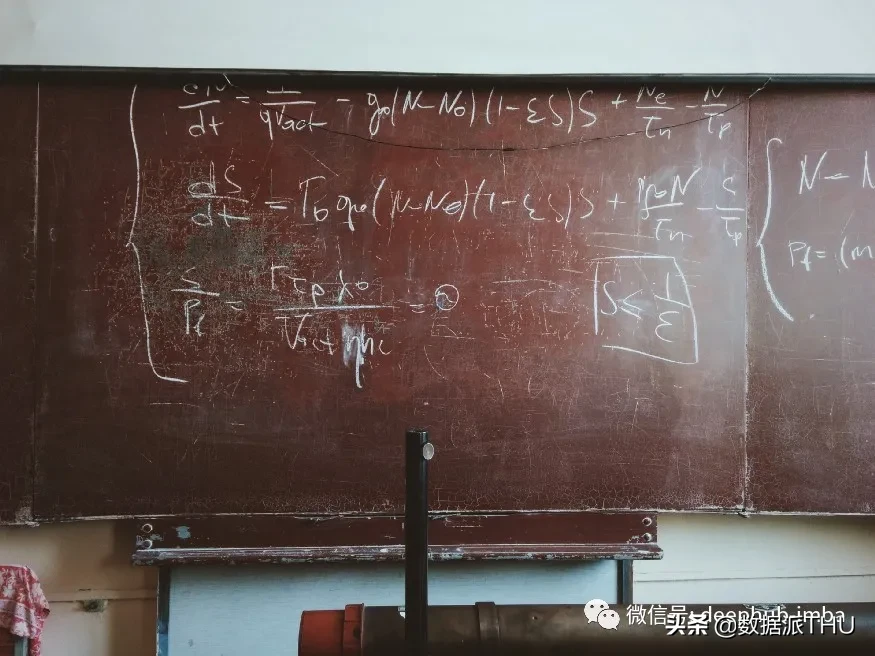 dN/dt = I/qVact - g₀(N-N₀)(1-εS)S + Ne/τn - N/τp
dS/dt = Γ₀g₀(N-N₀)(1-εS)S + N/τn - S/τp
S/Pf = Γτpλ₀/Vactηhc =
S ≤ 1/ε
N =
Pf = (m
微信号: deephub-imba
头条 @数据派THU